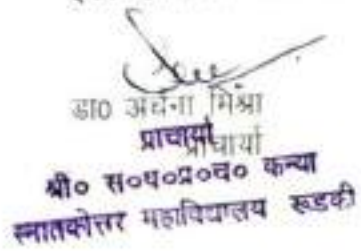 डा० अर्चना मिश्रा
प्राचार्या
प्राचार्या
श्री० स०ध०प्र०च० कन्या
स्नातकोत्तर महाविद्यालय रूडकी